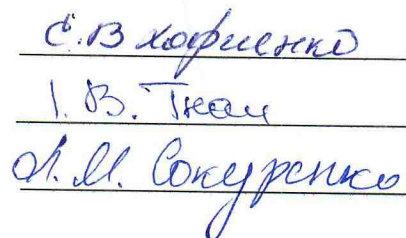 Є.В Хофненко
І. В. Ткач
Л. М. Сокуренко